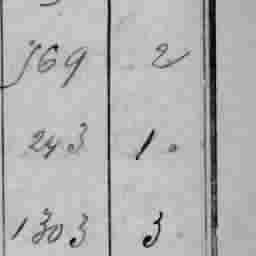 769 2
243 1.
1303 3